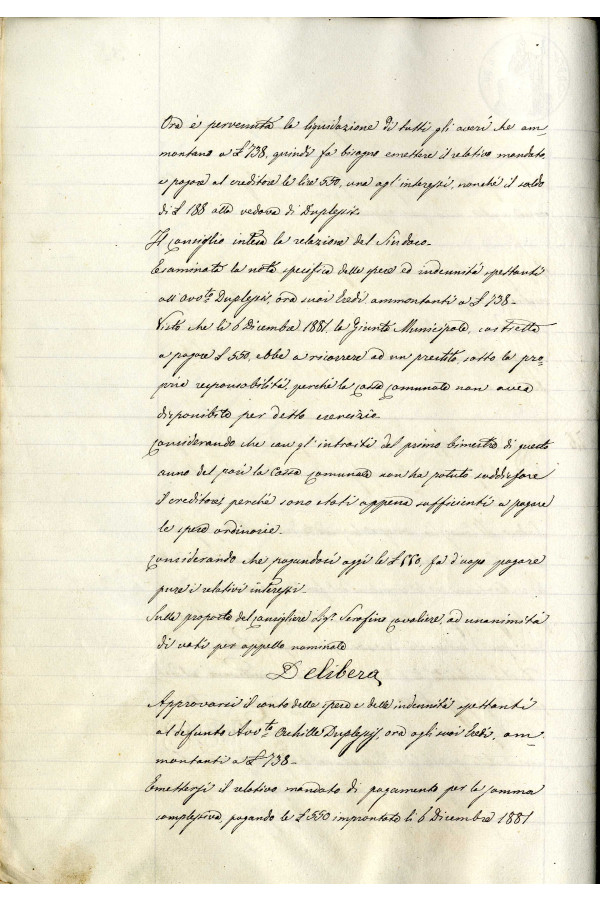 Ora è pervenuta la liquidazione di tutti gli averi che am-
montano a £ 738, quindi fa bisogno emettere il relativo mandato,
e pagare al creditore le lire 550, une agl'interessi, nonchè il saldo
di £ 188 alla vedova di Duplessis.
Il Consiglio intesa la relazione del Sindaco.
Esaminata la nota specifica delle spese ed indennità spettanti
all'avv.to Duplessis, ora suoi Eredi, ammontanti a £ 738-
Visto che li 6 Dicembre 1881, la Giunta Municipale, costretta
a pagare £ 550, ebbe a ricorrere ad un prestito, sotto la pro-
pria responsabilità, perchè la Cassa Comunale non avea
disponibile per detto esercizio
Considerando che con gl'introiti del primo bimestre di questo
anno del pari la Cassa Comunale non ha potuto soddisfare
il creditore, perchè sono stati appena sufficienti a pagare
le spese ordinarie.
Considerando che pagandosi oggi le £ 550, fa d'uopo pagare
pure i relativi interessi.
Sulla proposta del Consigliere Sig.r Serafino Cavaliere, ad unanimità
di voti per appello nominale
Delibera
Approvarsi il conto delle spese e delle indennità spettanti
al defunto Avv.to Achille Duplessis, ora agli suoi Eredi, am-
montanti a £ 738-
Emettersi il relativo mandato di pagamento per la somma
complessiva, pagando le £ 550 improntate li 6 Dicembre 1881